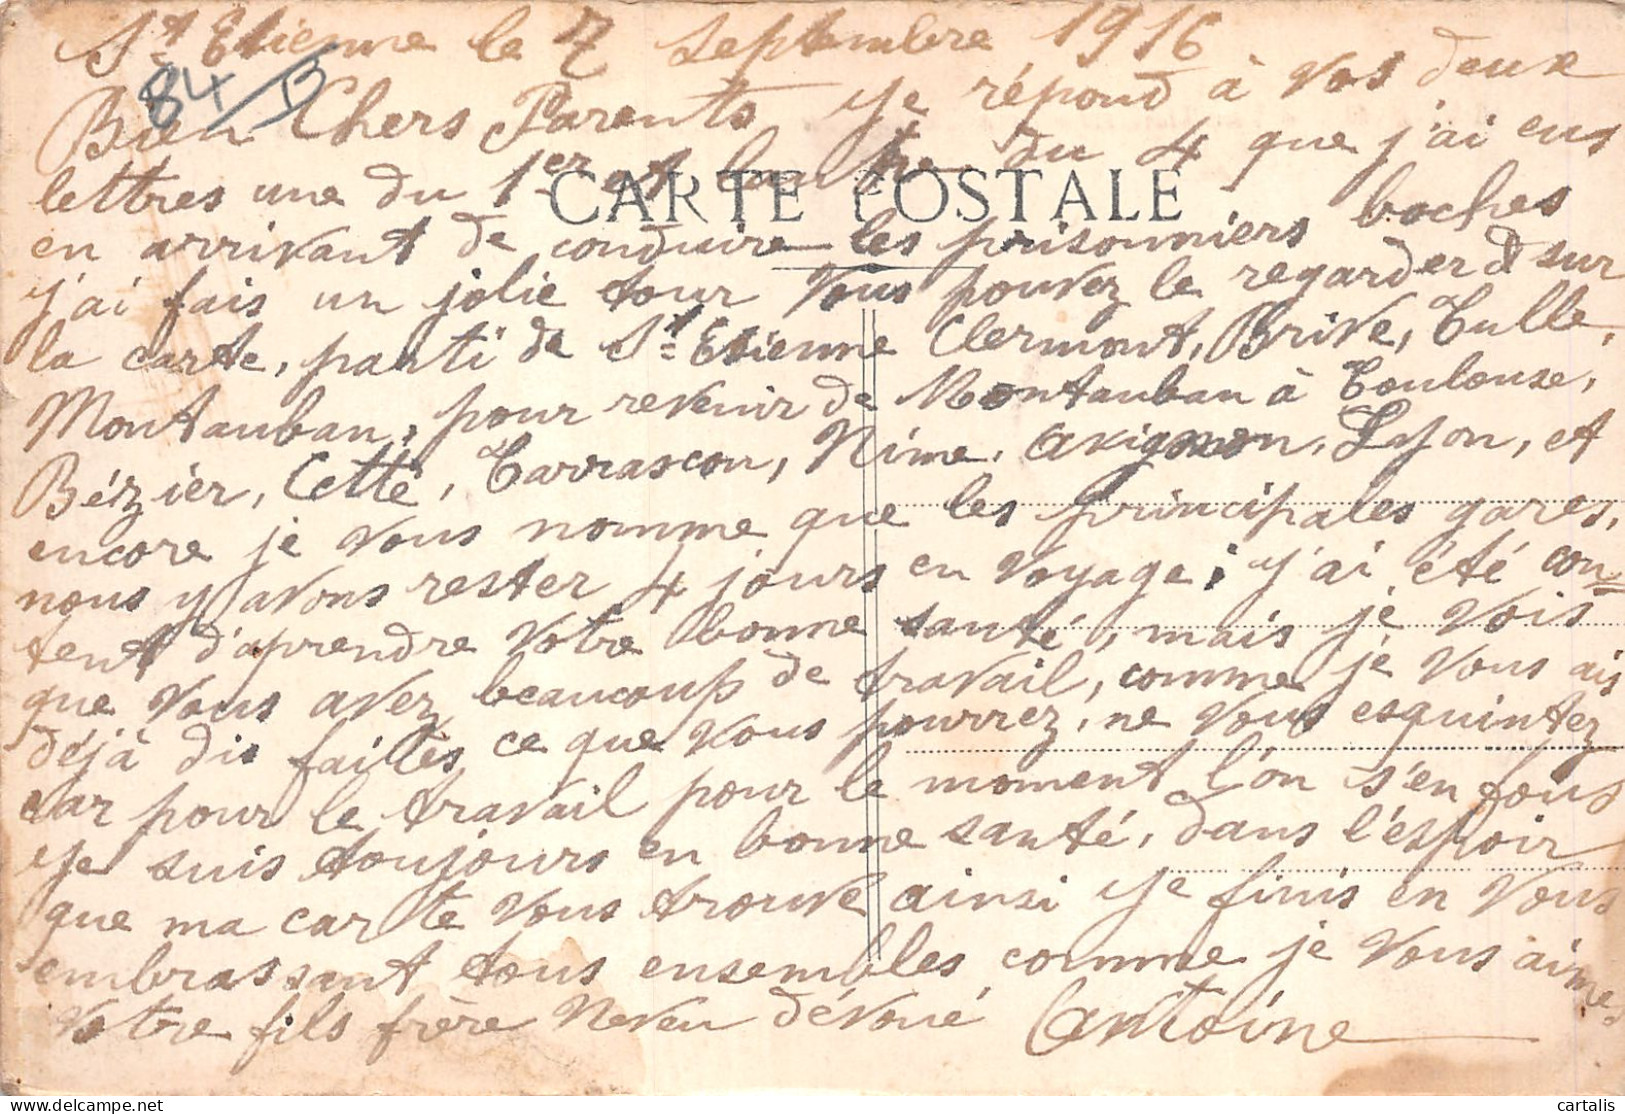 St Etienne le 7 Septembre 1916
84/B
Bien Chers Parents je répond à vos deux
lettres une du 1er et lautre du 4 que j'ai eus
CARTE POSTALE
en arrivant de conduire les prisonniers boches
j'ai fais un jolie tour vous pouvez le regarder sur
la carte, parti de St Etienne Clermont, Brive, Tulle,
Montauban, pour revenir de Montauban à Toulouse,
Bézier, Cette, Tarrascon, Nime, Avignon, Lyon, et
encore je vous nomme que les principales gares,
nous y avons rester 4 jours en voyage; j'ai été con=
tent d'aprendre votre bonne santé, mais je vois
que vous avez beaucoup de travail, comme je vous ais
déjà dis faites ce que vous pourrez, ne vous esquintez
car pour le travail pour le moment l'on s'en fous
je suis toujours en bonne santé, dans l'espoir
que ma carte vous trouve ainsi je finis en vous
embrassant tous ensembles comme je vous aime.
Votre fils frère Neveu dévoué Antoine
cartalis